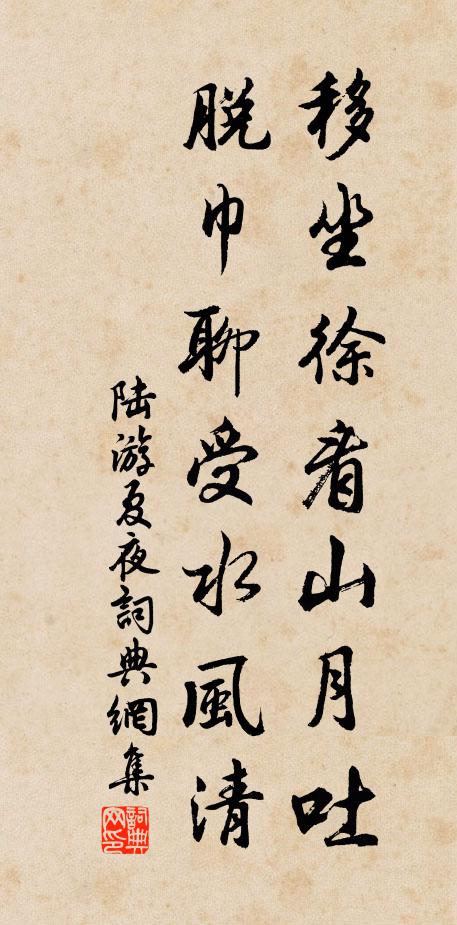 移坐徐看山月吐
脫巾聊受水風清
陆游夏夜詞典網集
詞典网印